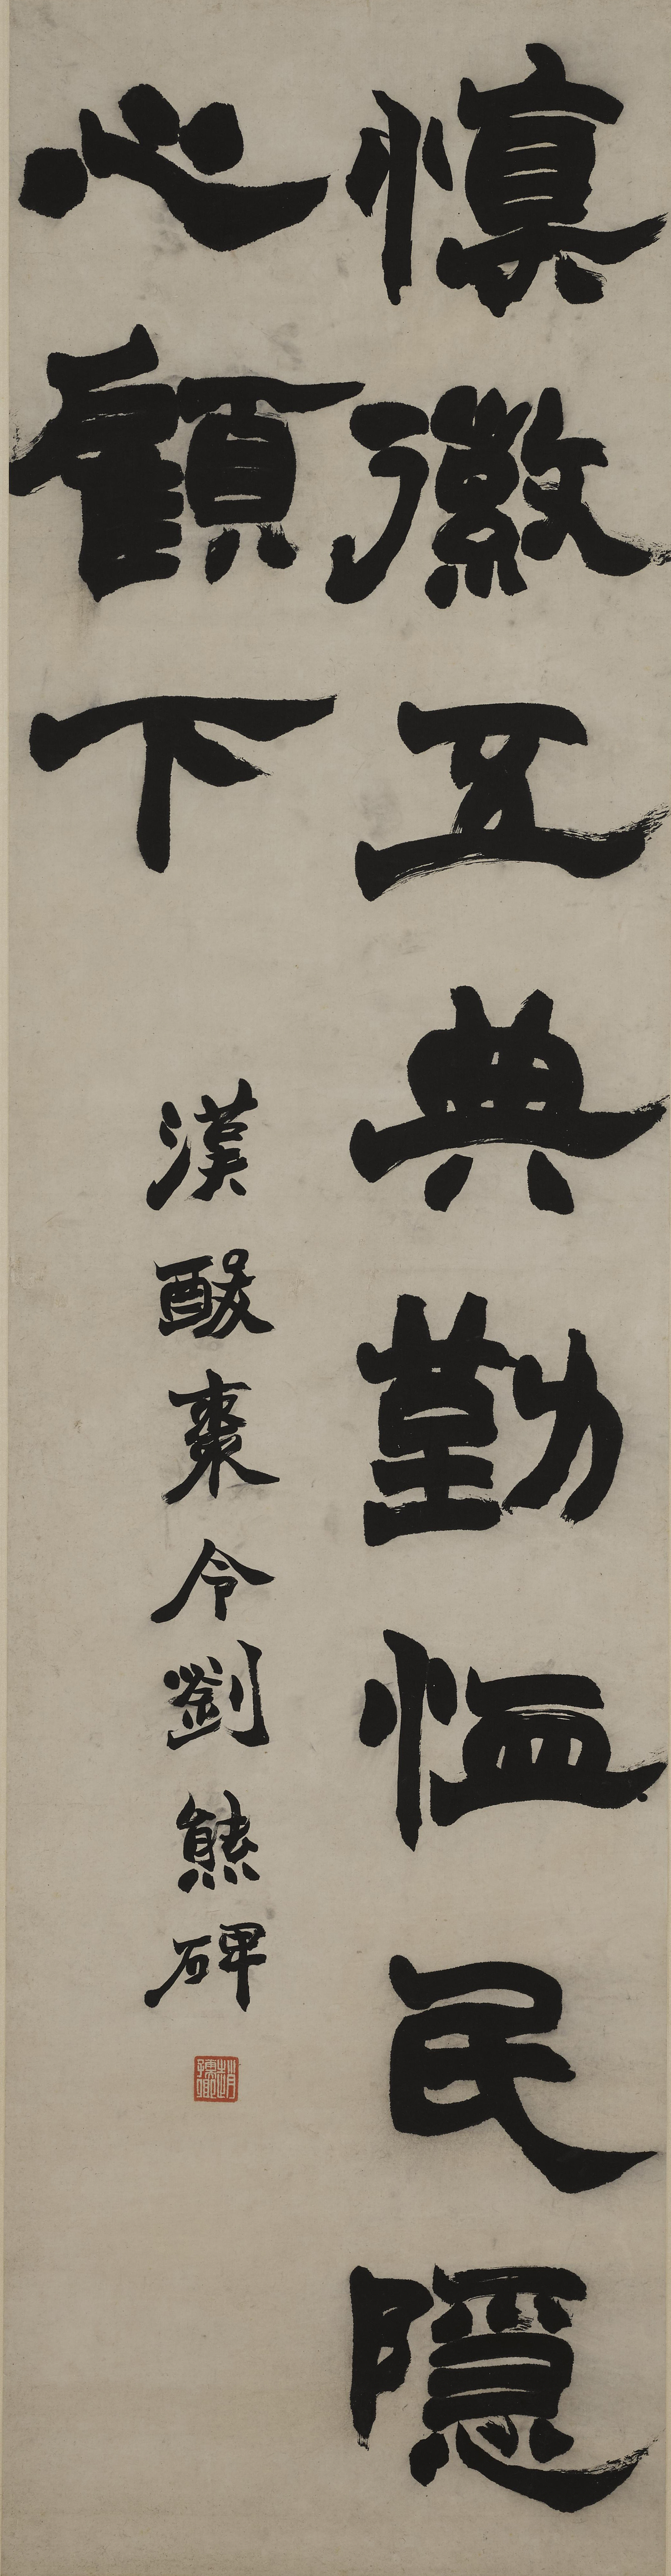 慎徽五典勤恤民隱
心顧下
漢酸棗令劉熊碑
趙之謙印